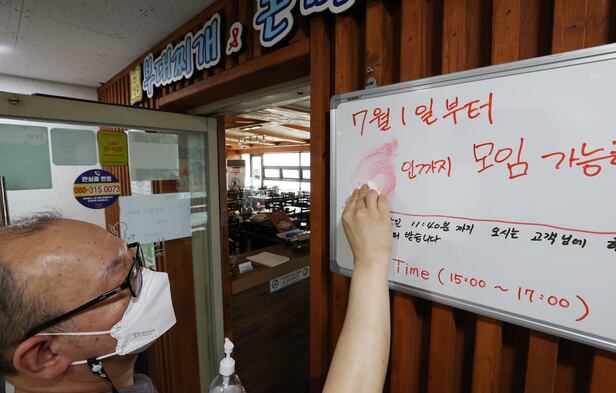 부대찌개 & 본
안심콜 번호
080-315 0073
7월 1일부터
인까지 모임 가능
11:40분 까지 오시는 고객님에
받습니다
Time (15:00 ~ 17:00)